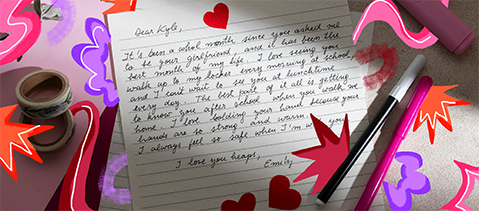 Dear Kyle,
It's been a whole month since you asked me
to be your girlfriend, and it has been the
best month of my life. I love seeing you
walk up to my locker every morning at school,
and I can't wait to see you at lunchtime
every day. The best part of all is getting
to know you after school when you walk me
home. I love holding your hand because your
hands are so strong and warm.
I always feel so safe when I'm w you
I love you heaps,
Emily